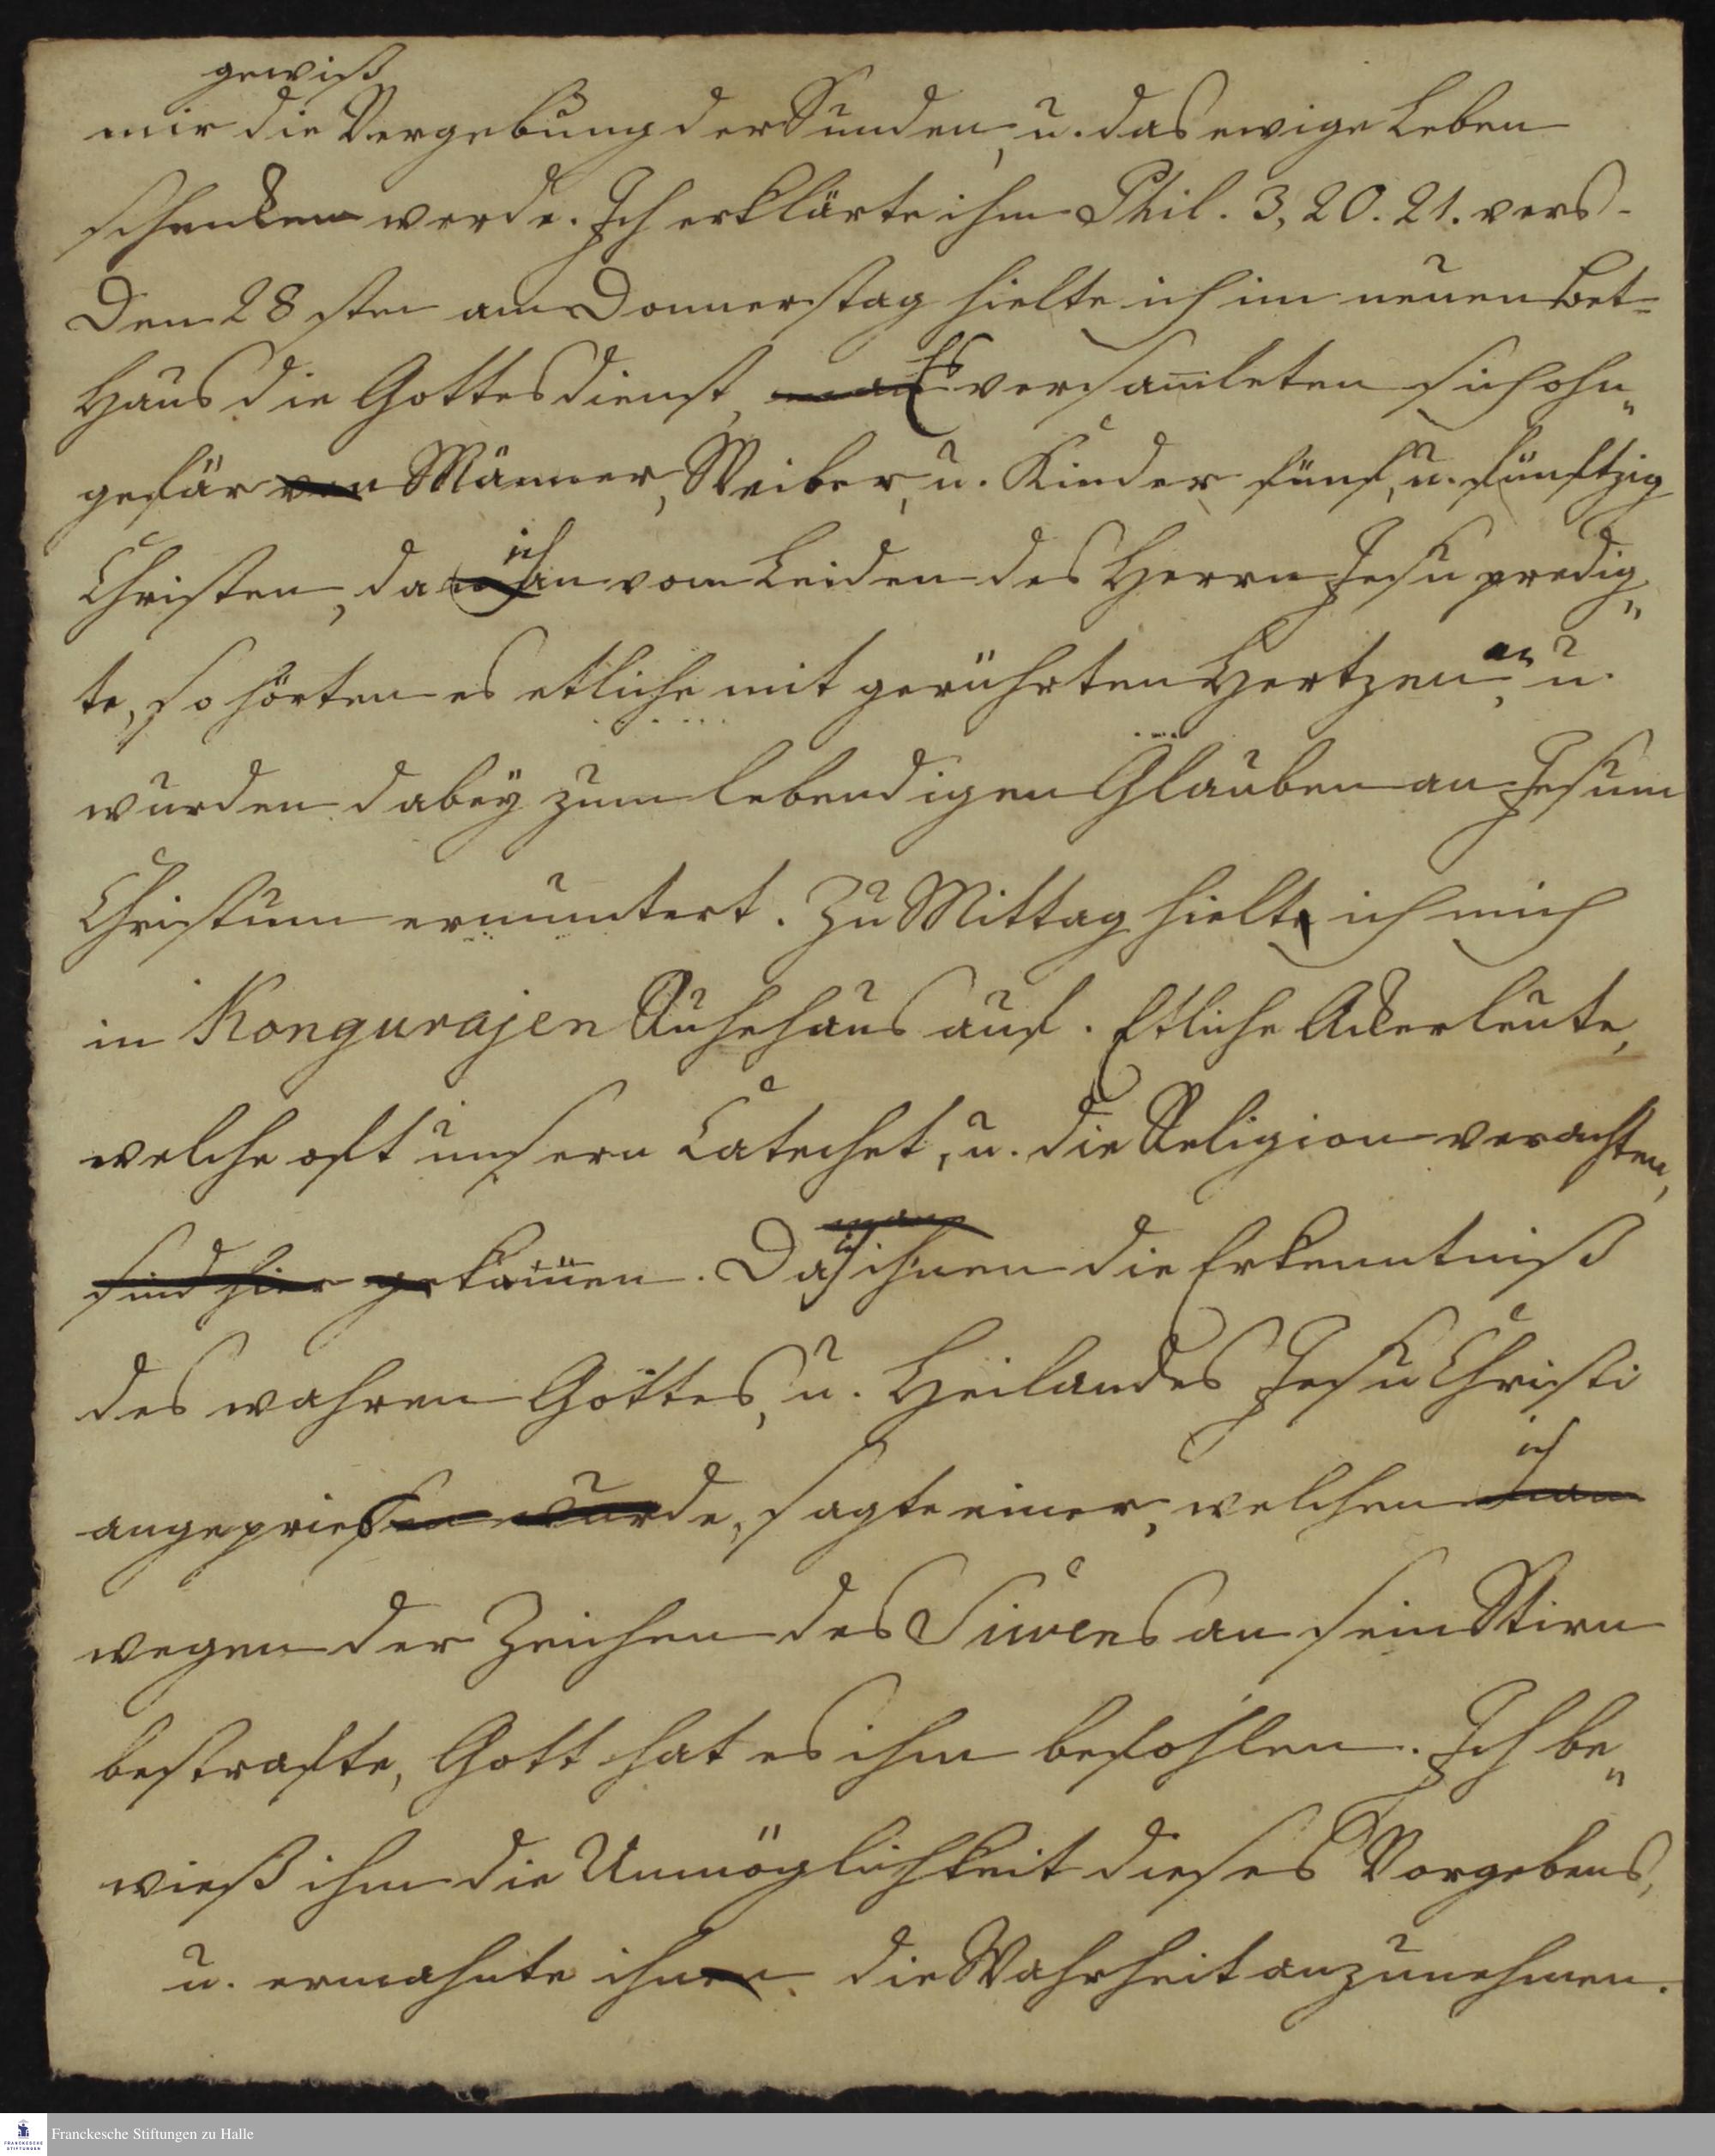 gewiß
mir die Vergebung der Sünden, u. das ewige Leben
schencken werde. Ich erklärte ihm Phil. 3, 20. 21. vers.
Den 28sten am Donnerstag hielte ich im neuen Bet-
Haus die Gottesdienst, Es versamleten sich ohn„
gefär von Männer, Weiber, u. Kinder fünf, u. fünftzig
Christen, da ich vom Leiden des Herrn Jesu predig„
te, so hörten es etliche mit gerührten Hertzen an, u.
wurden dabeÿ zum lebendigen Glauben an Jesum
Christum ermuntert. Zu Mittag hielte ich mich
in Kongurajen Ruhehaus auf. Etliche Ackerleute,
welche oft unsern Catechet, u. die Religion verachten,
man
sind hier gekamen. Da ich ihnen die Erkenntniß
des wahren Gottes, u. Heilandes Jesu Christi
ich
angepriesen wurde, sagte einer, welchen man
wegen der Zeichen des Siwens an sein Stirn
bestrafte, Gott hat es ihm befohlen. Ich be„
wieß ihm die Unmöglichkeit dieses Vorgebens,
u. ermahnte ihnen die Wahrheit anzunehmen.
Franckesche Stiftungen zu Halle
FRANCKESCHE
STIFTUNGEN